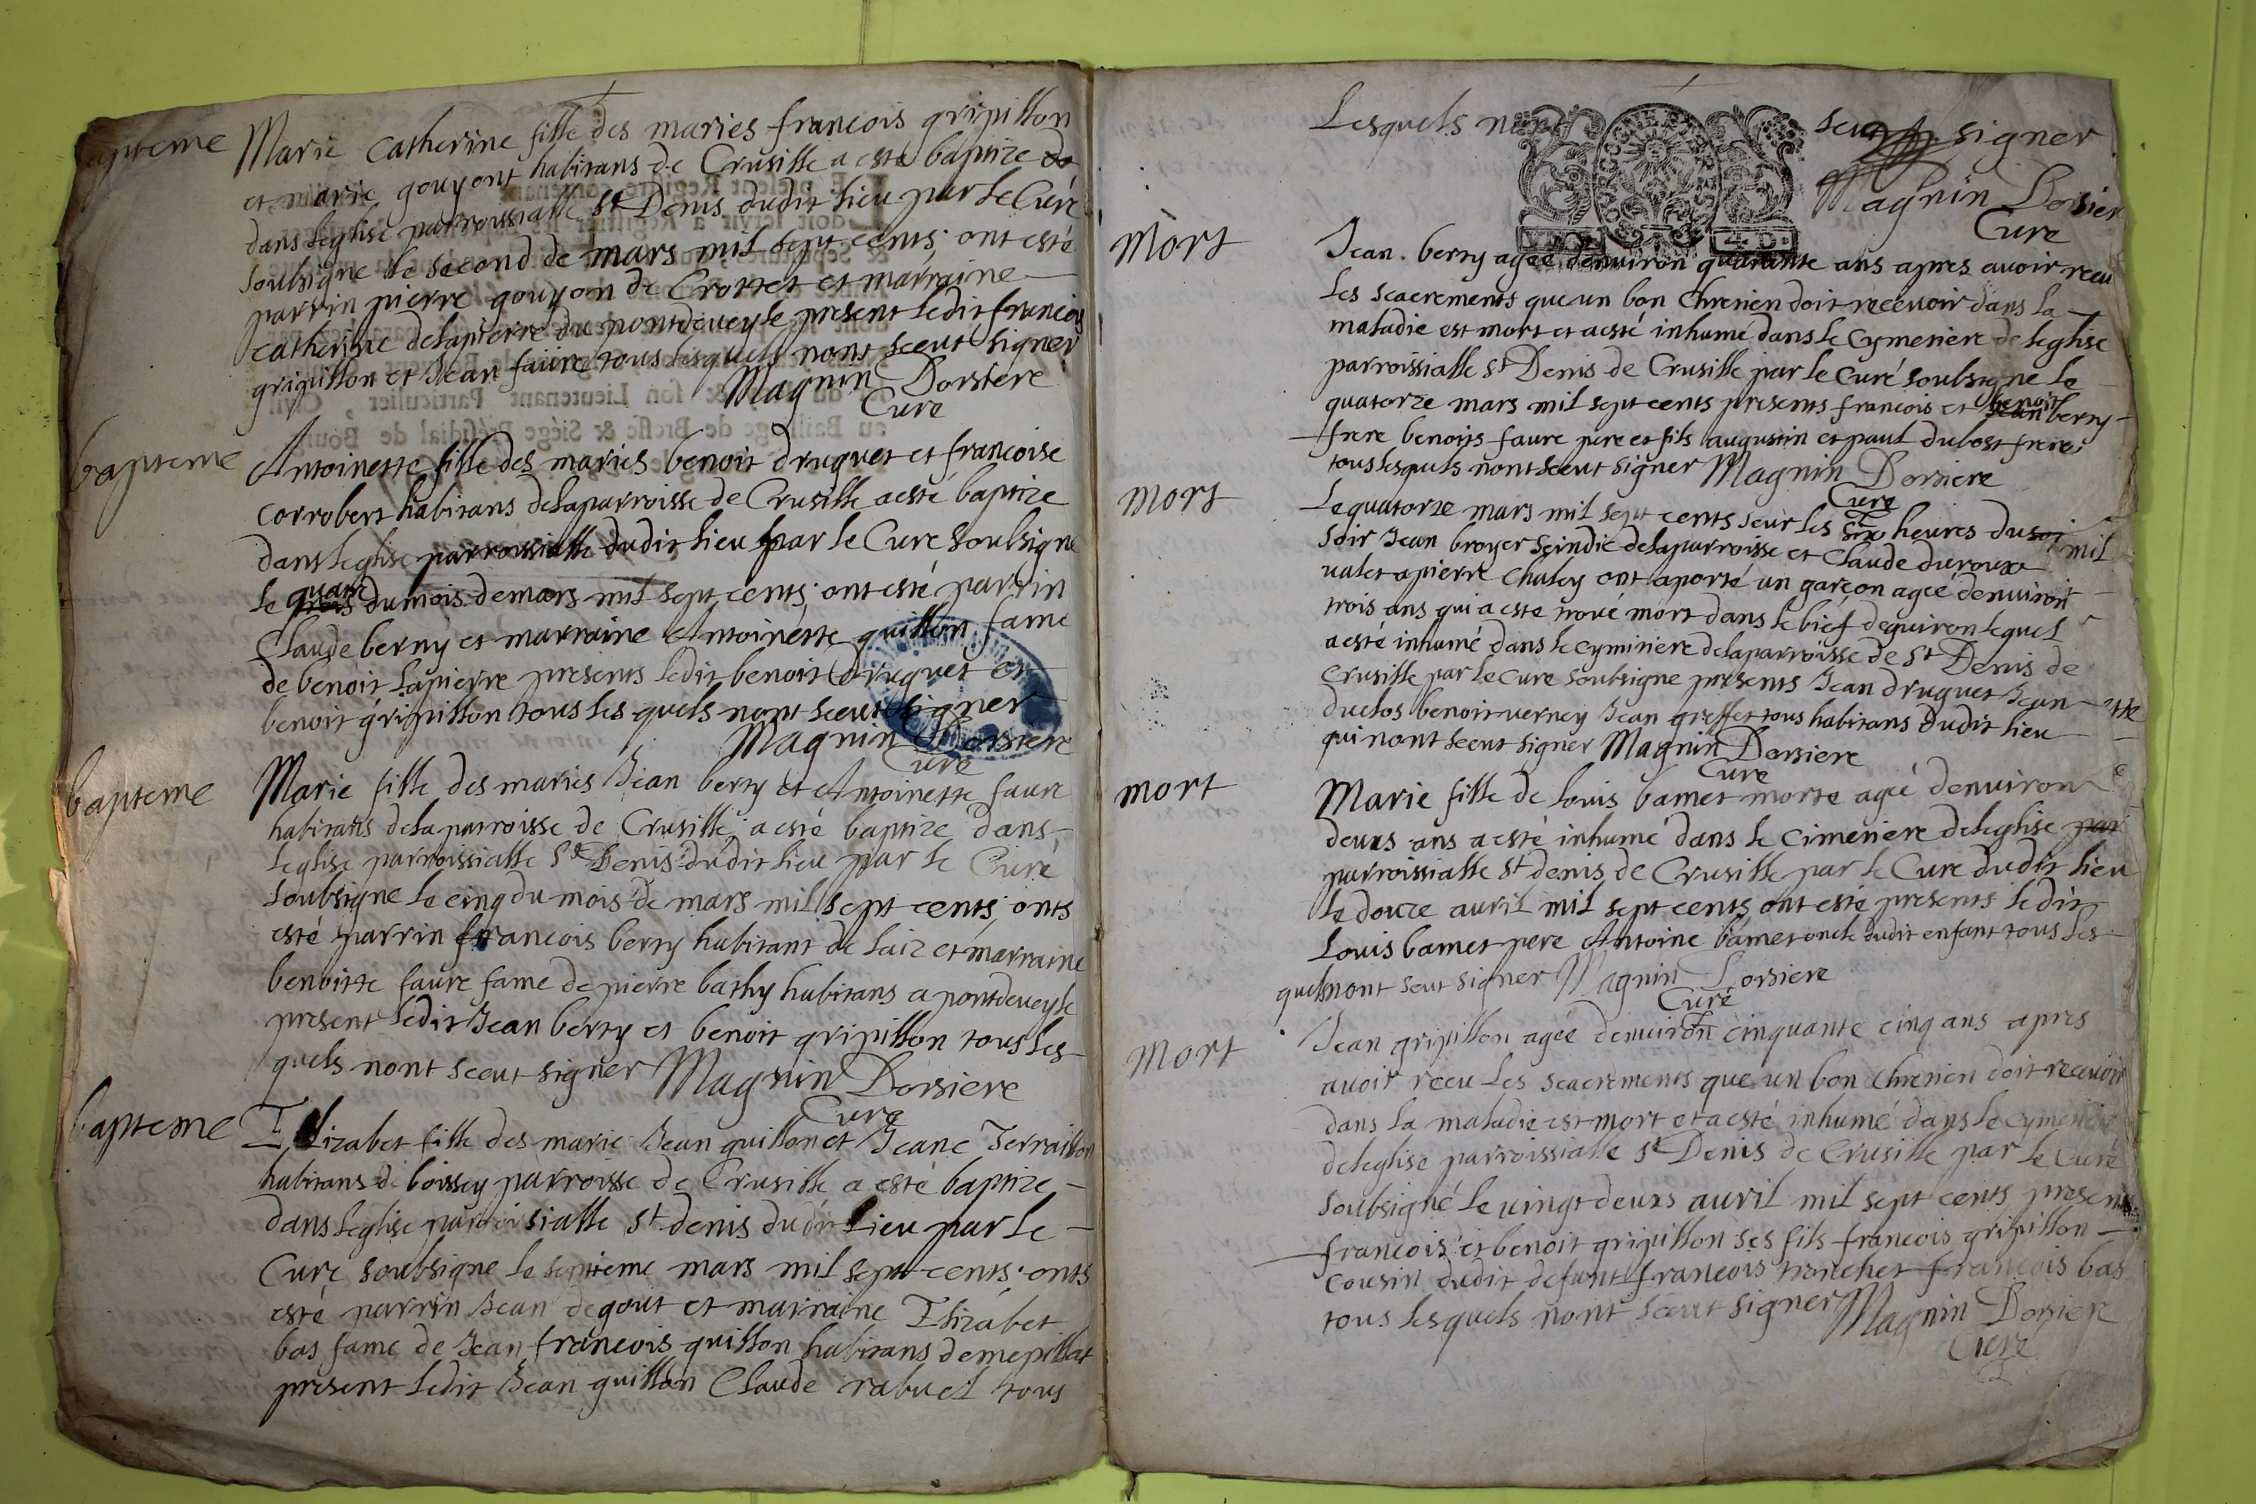 bapteme
Marie catherine fille des maries francois gripillon
et marie gouyont habitans de Crusille a esté baptize
dans leglise parroussialle St Denis dudit lieu par le Curé
soubsigne le second de mars mil sept cents; ont esté
parrin pierre gouyon de Crottet et marraine
catherine delapierre du pontdeveyle present ledit francois
gripillon et Jean faure tous lesquels nont sceut signer
Magnin Dorsiere
Cure
bapteme
Antoinette fille des maries benoit druguet et francoise
corrobert habitans delaparroisse de Crusille a esté baptize
dans leglise parroissialle dudit lieu par le Cure soulsigne
le quatre trois dumois de mars mil sept cents; ont esté parrin
Claude berny et marraine Antoinette guillon fame
de benoit lapierre presents ledit benoit druguet et
benoit gripillon tous les quels nont sceut signer
Magnin Dorsiere
Cure
bapteme
Marie fille des maries Jean berry et Antoinette faure
habitans dela parroisse de Crusille a esté baptize dans
leglise parroissialle St Denis dudit lieu par le Curé
soubsigne le cinq du mois de mars mil sept cents; onts
esté parrin francois berry habitant de laiz et marraine
benoitte faure fame de pierre bathy habitans a pontdeveyle
present ledit Jean berry et benoit gripillon tous les
quels nont sceut signer Magnin Dorsiere
Cure
bapteme
Elizabet fille des marie Jean guillon et Jeane Terraillon
habitans de boissey parroisse de Crusille a esté baptize
dans leglise parroissialle St denis dudit lieu par le
Cure soubsigne le septieme mars mil sept cents; onts
esté parrin Jean degout et marraine Elizabet
bas fame de Jean francois guillon habitans demepillat
present ledit Jean guillon Claude rabuel tous
Lesquels nont sceut signer
Magnin Dorsiere
Cure
Mort
Jean berry agée denviron quarante ans apres avoir receu
Les scacrements que un bon Chretien doit recevoir dans la
maladie est mort et a esté inhumé dans le Cymetiere de leglise
parroissialle St Denis de Crusille par le Curé soulsigne le
quatorze mars mil sept cents presents francois et benoit berry
frere benoits faure pere et fils augustin et paul dubost frere
tous lesquels nont sceut signer Magnin Dorsiere
Cure
mort
Le quatorze mars mil sept cents seur les six heures du
soir Jean broyer scindic delaparroisse et Claude duroux
valet a pierre Chaley ont aporté un garçon agée denviron
trois ans qui a este troué mort dans le bief dequiron lequel
a esté inhumé dans le cymitiere delaparroisse de St Denis de
Crusille par le Cure soubsigne presents Jean druguet Jean
duclos benoit verney Jean greffet tous habitans dudit lieu
qui nont sceut signer Magnin Dorsiere
Cure
mort
Marie fille de Louis bamet morte agé denviron
deuxs ans a esté inhumé dans le cimetiere deleglise par
parroissialle St denis de Crusille par le Cure dudit lieu
le douze avril mil sept cents ont esté presents ledit
Louis bamet pere Antoine bamet oncle dudit enfant tous les
quels nont seut signer Magnin Dorsiere
Curé
mort
Jean gripillon agée denviron cinquante cinq ans apres
avoir receu Les scacrements que un bon Chretien doit recevoir
dans la maladie est mort et a esté inhumé dans le Cymetiere
deleglise parroissialle St Denis de Crusille par le Curé
soubsigné le vingt deuxs avril mil sept cents presents
francois et benoit gripillon ses fils francois gripillon
cousin dudit defunt francois tronchet francois bas
tous lesquels nont sceut signer Magnin Dorsiere
Cure